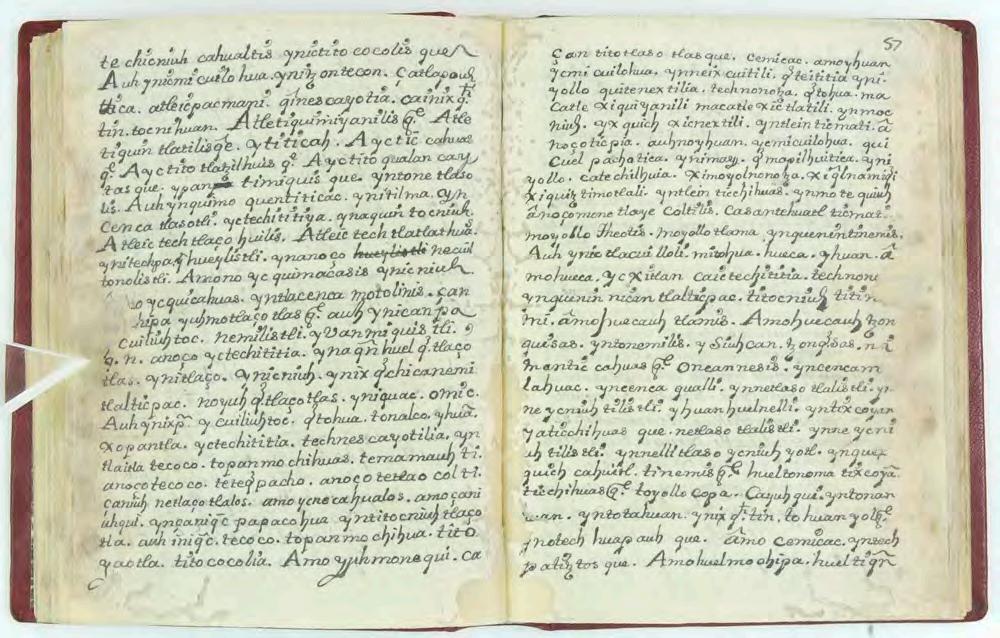 te chicniuh cahualtis ynictito cocolis que
Auh ynicmi cuilo hua. ynitzontecon. Çatlapouh
ttica. atleicpacmani. qines cayotia. cainix q.
tin. tocnihuan. Atletiquimiyanilis qe. Atle
tiquin tlatilisqe. ytiticah. Ayctic cahuas
qe Ayctito tlatzilhuis qe. Ayctito qualan cay
tas que. ypan timiquis que. yntone tlaso
lis. Auh ynquimo quentiticac. ynitilma. yn
cenca tlasotli. yctechititiya. ynaquin tocniuh.
Atleic tech tlaço huilis. Atleic tech tlatlathuas.
ynitechpa. hueylistli. ynanoco necuil
tonolistli. Amono yc quimacasis ynicniuh
yc quicahuas. yntlacenca motolinis. çan
hipa yuhmotlaço tlas qe. auh ynicanpa
cuiliuhtoc. nemilistli. yvan miquis tli.
q. n. anoço yctechititia. ynaqn huel q. tlaço
tlas. ynitlaço. ynicniuh. ynix qchicanemi
tlalticpac. noyuh q. tlaço tlas. yniquac. omic.
Auh ynixpn. y cuiliuhtoc. qtohua. tonalco. yhuan.
xopantla. yctechititia. technes cayotilia, yn
tlaintla tecoco. topan mo chihuas. temamauh ti.
anoço tecoco. teteqpacho. anoço tetlao colti.
caniuh netlaço tlalos. amo ycnocahualos. amo çani
uhqui. ynçaniqc papaco hua. yntitocniuh tlaço
tla. auh iniqc. tecoco. topan mo chihua. tito
yaotla. titococolia. Amo yyuhmonequi. ca
57
Çan titotlaso tlasque. cemicac. amoyhuan
ycmi cuilohua. ynneix cuitili. qteititia yni
yollo quitenextilia. technonotza. qtohua. ma
catle xiquiyanili macatle xictlatili. ynmoc
niuh. yx quich xicnextili. yntlein ticmati. a
noço ticpia. auhnoyhuan. ycmicuilohua. qui
cuel pachotica. ynimay. qmapilhuitica. yni
yollo. catechilhuia. ximoyolnonotza. xiqlnamiqi
xiquix timotlali. yntlein ticchihuas. ynmo te quiuh
anoço mone tlaye coltilis. Casantehuatl ticmat.
moyollo theotis. moyollo tlama. ynquenintinemis.
Auh ynic tlacui lloli. mitohua. hueca. yhuan. a
mohueca. yc xitlan caictechititia. technono
ynquenin nican tlalticpac. titocniuh titin
ini. amo huecauh tlamis. Amo huecauh tzon
quisas. yntonemilis. y Siuhcan. tzonqisas. na
mantic cahuas qe. Oncannesis. yncencam
lahuac. yncenca qualli. ynnetlaso tlalistli. yn
ne ycniuh tilistli. yhuan huelnelli. yntixcoyan
yaticchihuas que. netlaso tlalistli. ynne ycni
uh tilistli. ynnelli tlaso ycniuh yotl. ynquex
quich cahuitl. tinemis qe. hueltonoma tixcoya.
ticchihuas qe. toyollo copa. Cayuh qui. yntonan
uan. yntotahuan. ynix q. tin. to huan yolqe.
ynotech huapauh que. amo cemicac. yntech
patiztos que. Amohuelmochipa. huel tiqn